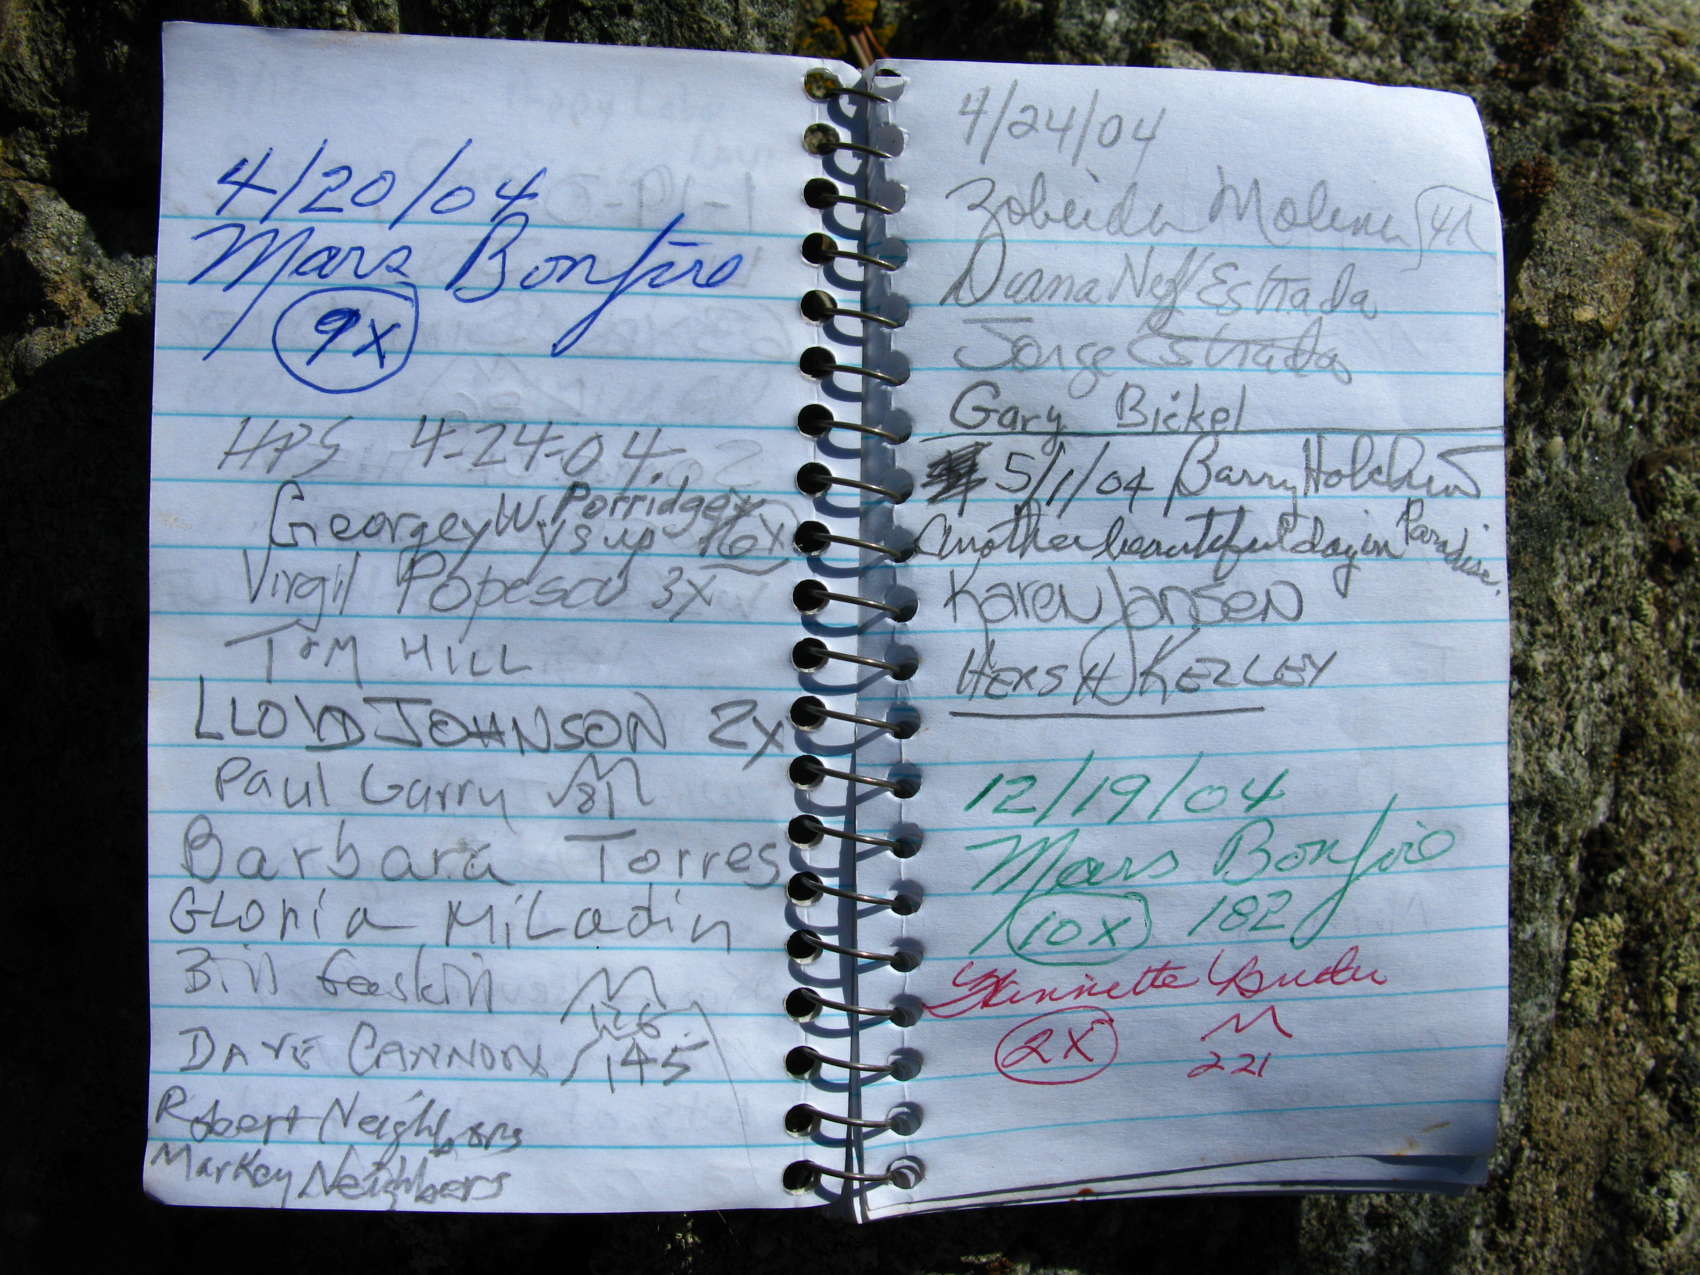 4/20/04
Mars Bonfire
9x
HPS 4-24-04
Georgey W. Porridge
ys up 16x
Virgil Popescu 3x
Tom HILL
LLOYD JOHNSON 2x
Paul Garry 81
Barbara Torres
GLoria MiLadin
Bill Gaskill 126
DAVE CANNON 145
Robert Neighbors
Markey Neighbors
4/24/04
Zobeida Molina 41
Diana Neff Estrada
Jorge Estrada
Gary Bickel
5/1/04 Barry Holchin
Another beautiful day in Paradise.
Karen Jansen
HERSH KELLEY
12/19/04
Mars Bonfire
10x 182
2x
221